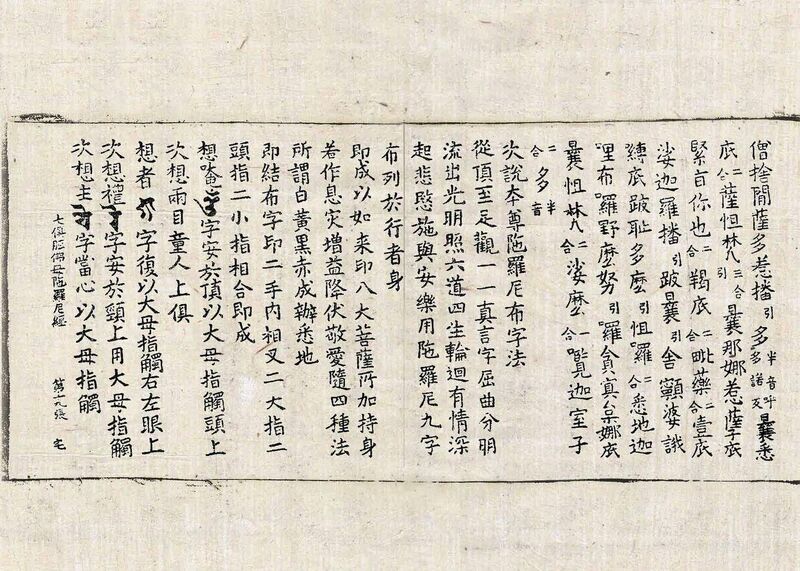 僧捨閞薩多惹播引多半音呼多諾反曩悉
底二合薩怛𠆙二三合引曩那娜惹薩底
緊盲你也二合羯底二合毗藥二合壹底
娑迦羅播引跛曩引舍顙婆誐
縛底跛耻多麼引怛羅二合悉地迦
哩布引羅野麼努引羅貪真枲娜底
曩怛𠆙二合娑麼一覽迦室子
二合多半音
次說本尊陁羅尼布字法
從頂至足觀一一真言字屈曲分明
流出光明照六道四生輪迴有情深
起悲愍施與安樂用陁羅尼九字
布列於行者身
即成以如來印八大菩薩所加持身
若作息灾增益降伏敬愛隨四種法
所謂白黃黑赤成辦悉地
即結布字印二手內相叉二大指二
頭指二小指相合即成
想唵字安於頂以大母指觸頭上
次想兩目童人上俱
想者字復以大母指觸右左眼上
次想禮字安於頸上用大母指觸
次想主字當心以大母指觸
七俱胝佛母陁羅尼經 第十九張 宅